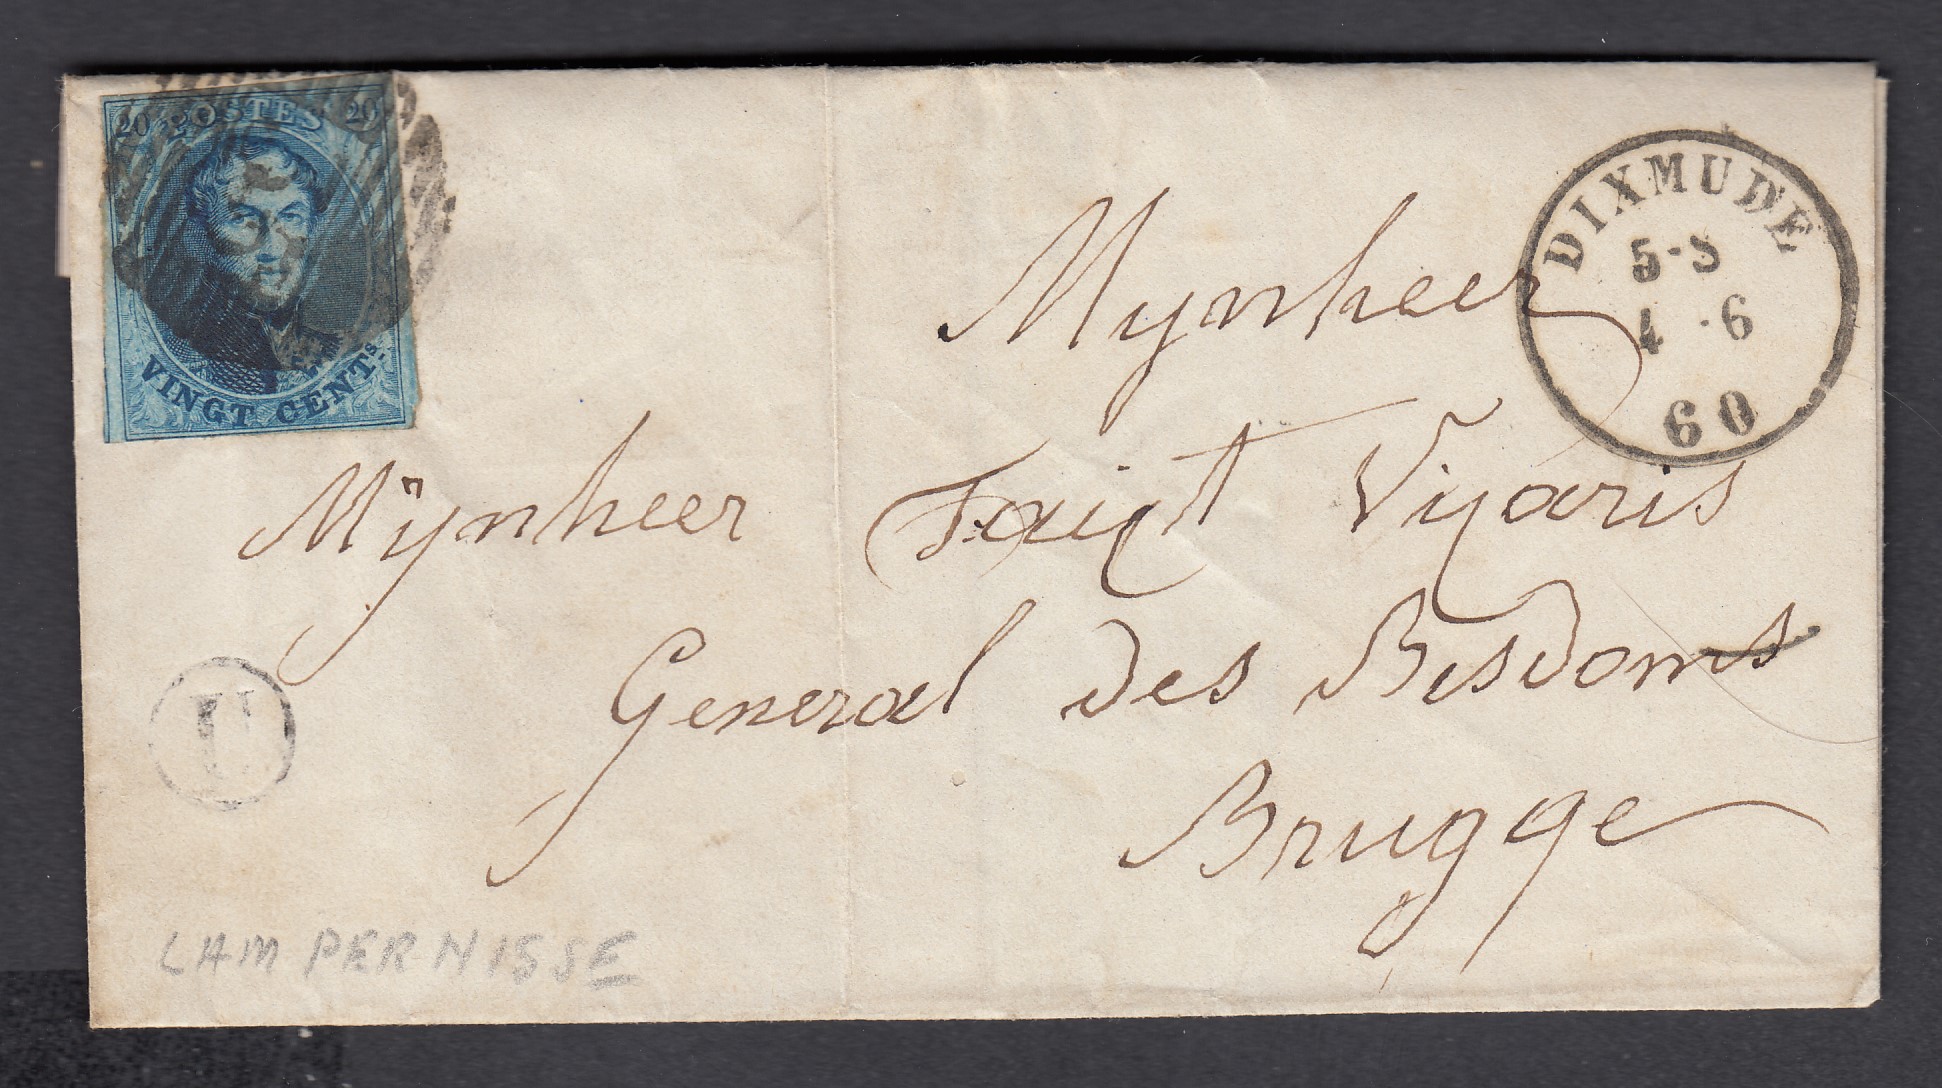 20 POSTES 20
VINGT CENTS.
DIXMUDE
5-S
4 · 6
60
Mynheer
Mÿnheer Faict Viÿaris
General des Bisdoms
Brugge
U
LAMPERNISSE